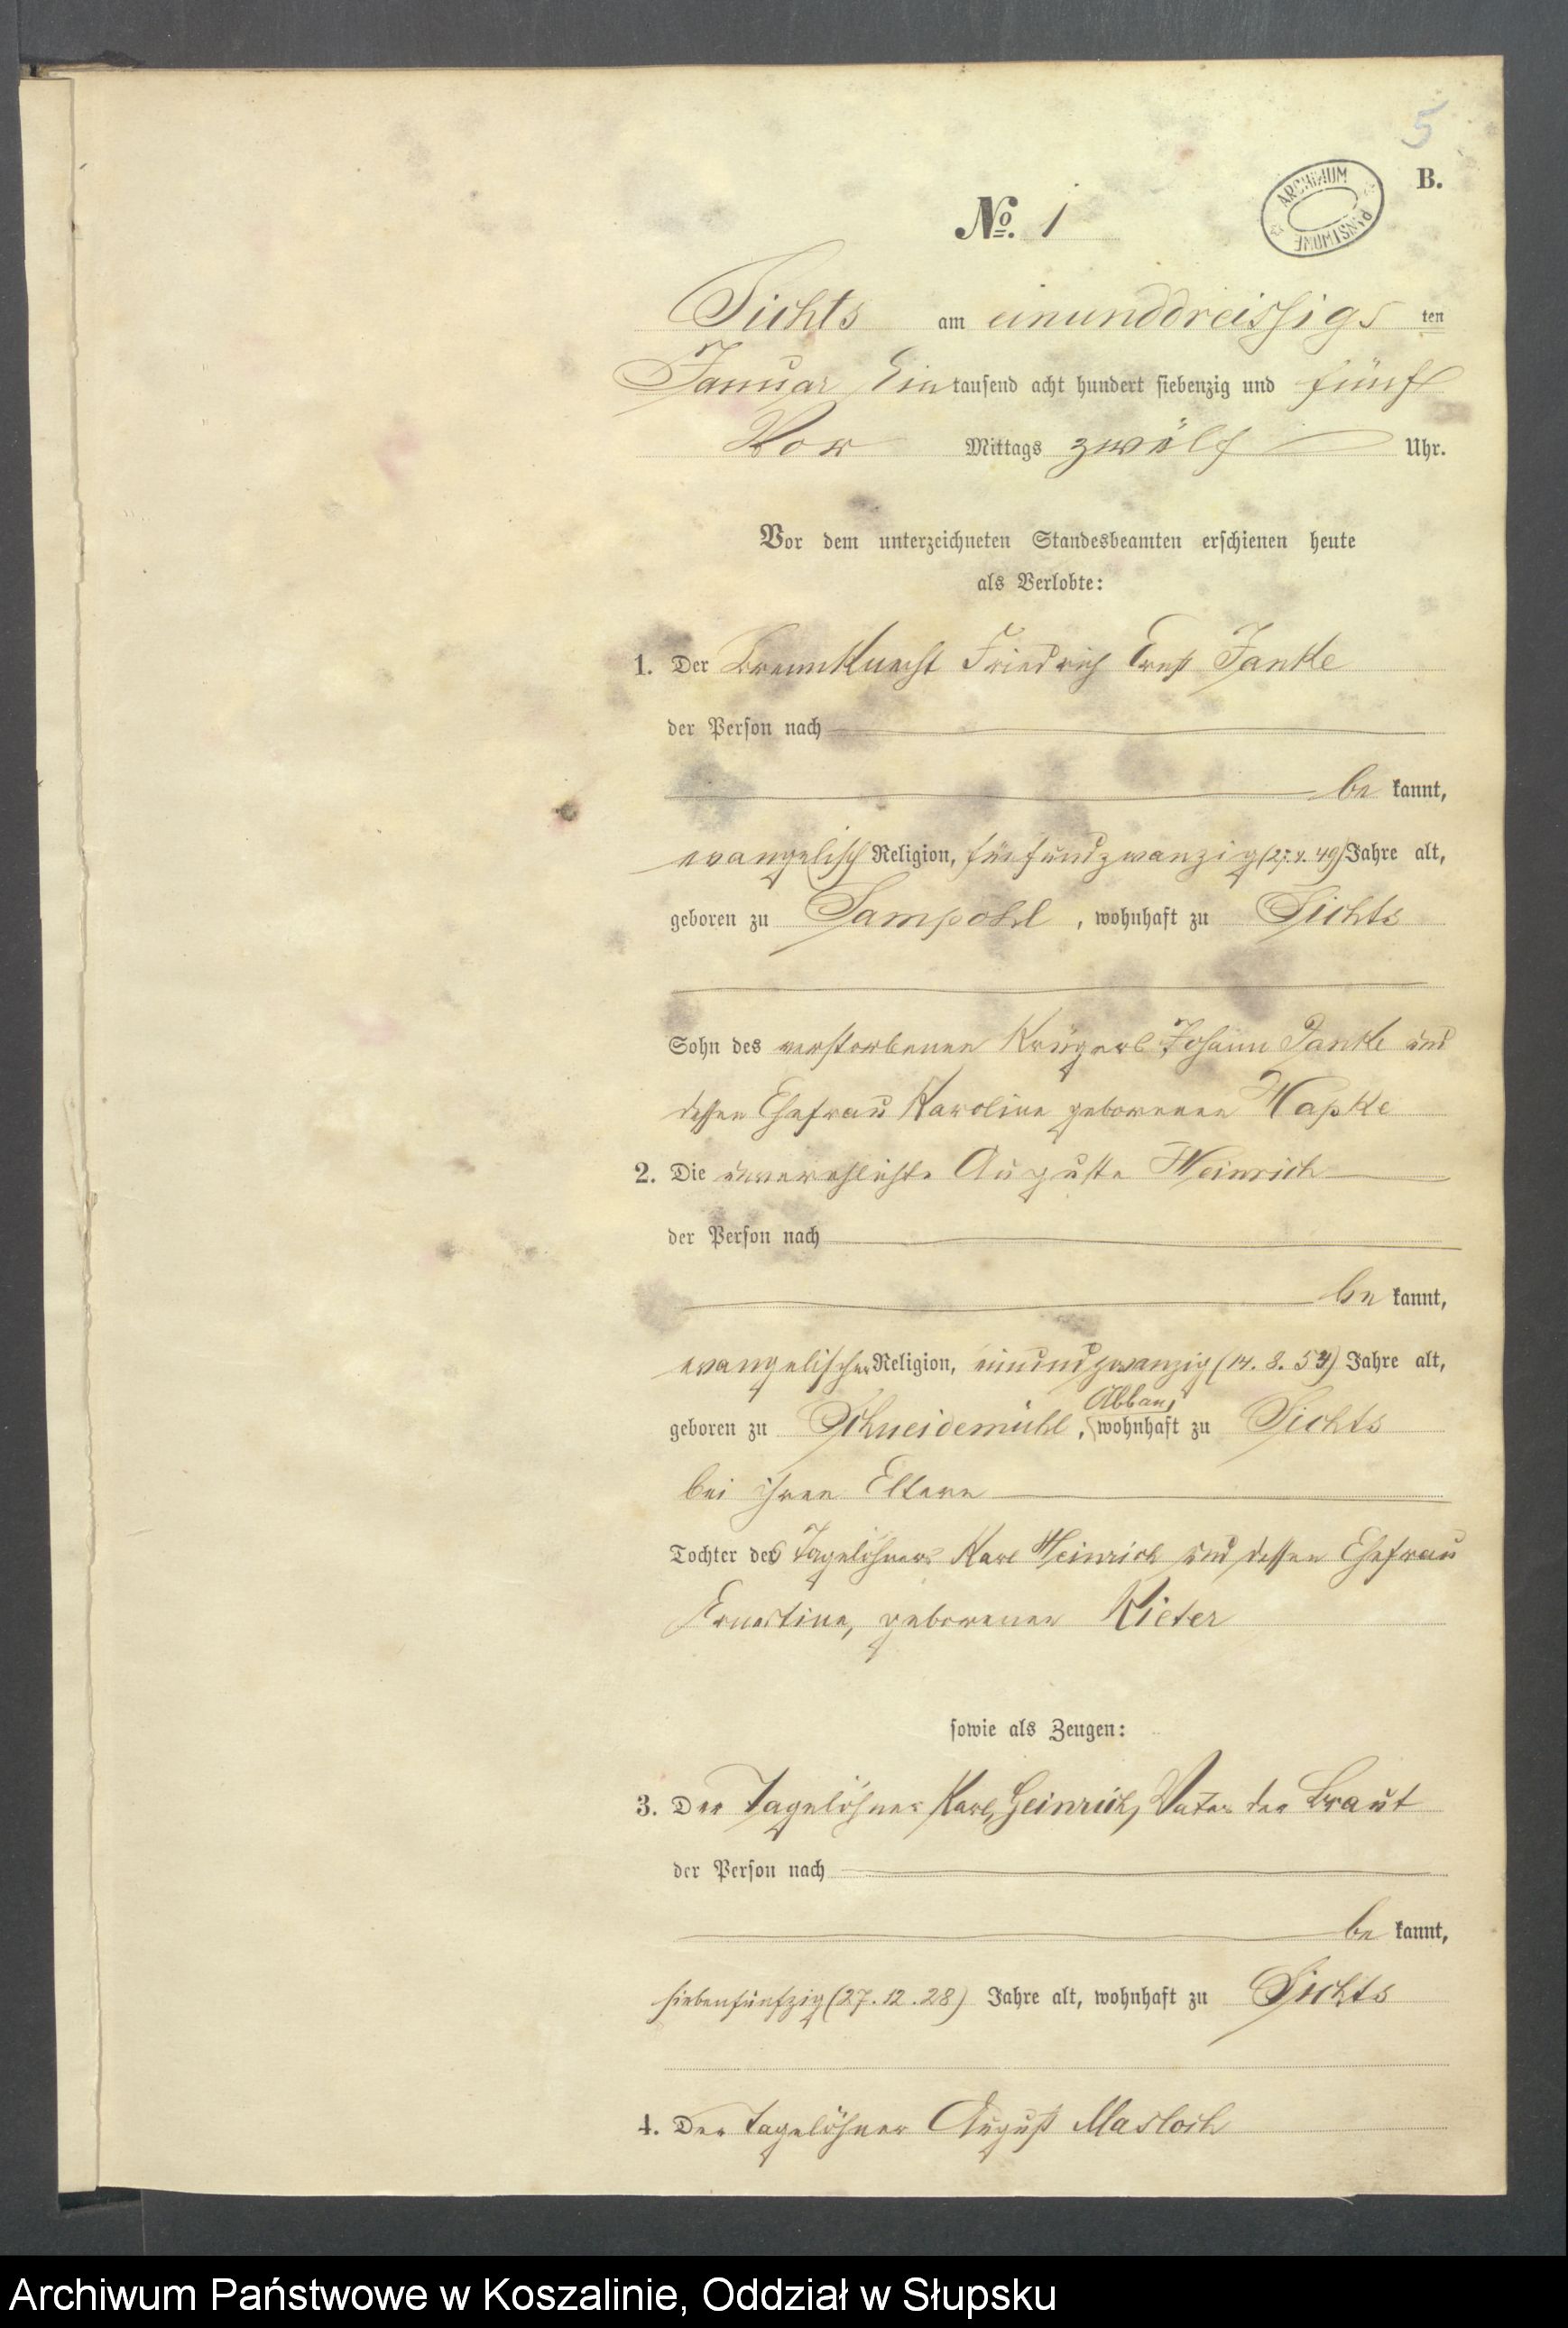 5
B.
ARCHIWUM PAŃSTWOWE
No. 1
Sichts am einunddreissigs ten
Januar Ein tausend acht hundert siebenzig und fünf
Vor Mittags zwölf Uhr.
Vor dem unterzeichneten Standesbeamten erschienen heute
als Verlobte:
1. Der Brennknecht Friedrich Ernst Janke
der Person nach
be kannt,
evangelisch Religion, fünfundzwanzig Jahre alt,
geboren zu Sampohl, wohnhaft zu Sichts
Sohn des verstorbenen Krügers Johann Janke und
dessen Ehefrau Karoline geborenen Hapke
2. Die unverehlichte Auguste Heinrich
der Person nach
be kannt,
evangelischer Religion, einundzwanzig (14. 8. 54) Jahre alt,
Abbau,
geboren zu Schneidemühl, wohnhaft zu Sichts
bei ihren Eltern
Tochter des Tagelöhners Karl Heinrich und dessen Ehefrau
Ernestine, geborenen Kieter
sowie als Zeugen:
3. Der Tagelöhner Karl Heinrich, Vater der Braut
der Person nach
be kannt,
siebenfünfzig (27. 12. 28) Jahre alt, wohnhaft zu Sichts
4. Der Tagelöhner August Masloch
Archiwum Państwowe w Koszalinie, Oddział w Słupsku